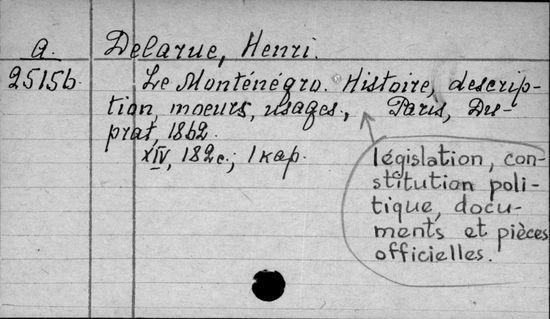 a. Delarue, Henri.
2515b. Le Monténégro. Histoire, descrip-
tion, moeurs, usages, Paris, Du-
prat, 1862.
XIV, 182 c.; 1 кар.
législation, con-
stitution poli-
tique, docu-
ments et pièces
officielles.